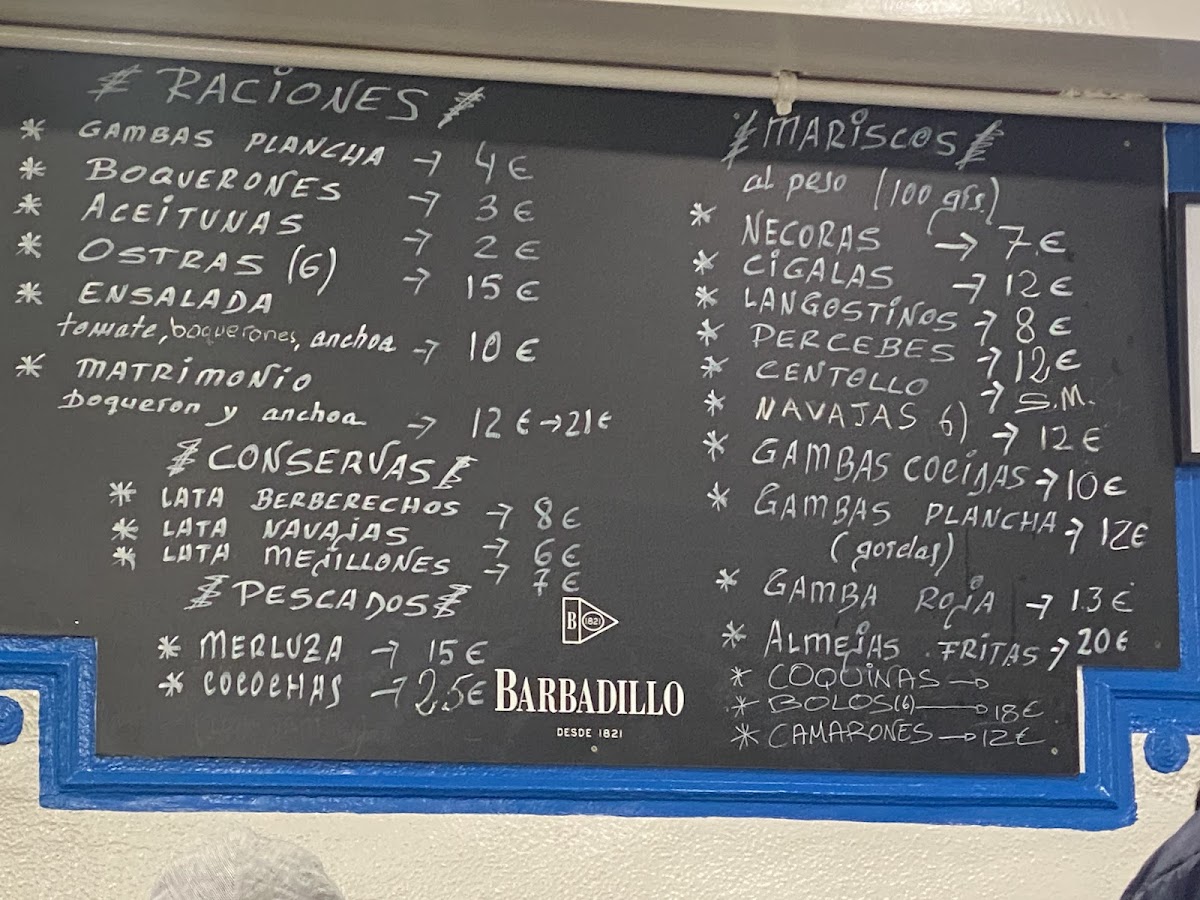 RACIONES
* GAMBAS PLANCHA → 4€
* BOQUERONES → 3€
* ACEITUNAS → 2€
* OSTRAS (6) → 15€
* ENSALADA
tomate, boquerones, anchoa → 10€
* MATRIMONIO
Boqueron y anchoa → 12€→21€
CONSERVAS
* LATA BERBERECHOS → 8€
* LATA NAVAJAS → 6€
* LATA MEJILLONES → 7€
PESCADOS
* MERLUZA → 15€
* COCOCHAS → 25€
B 1821
BARBADILLO
DESDE 1821
MARISCOS
al peso (100 grs.)
* NECORAS → 7€
* CIGALAS → 12€
* LANGOSTINOS → 8€
* PERCEBES → 12€
* CENTOLLO → S.M.
* NAVAJAS 6) → 12€
* GAMBAS COCIDAS → 10€
* GAMBAS PLANCHA → 12€
(gordas)
* GAMBA ROJA → 13€
* ALMEJAS FRITAS → 20€
* COQUINAS →
* BOLOS (6) → 18€
* CAMARONES → 12€